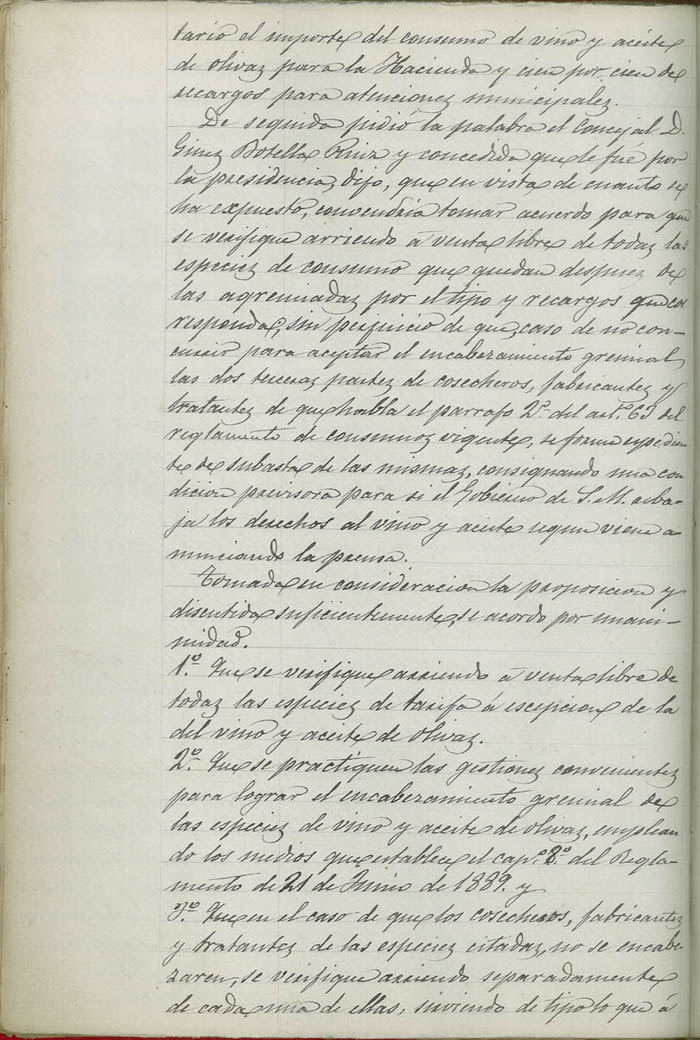 tario el importe del consumo de vino y aceite
de olivas para la Hacienda y cien por cien de
recargos para atenciones municipales.
De seguida pidió la palabra el Concejal D.
Gines Botella Ruiz y concedida que le fué por
la presidencia, dijo, que en vista de cuanto se
ha expuesto, convendría tomar acuerdo para que
se verifique arriendo á venta libre de todas las
especies de consumo que quedan despues de
las agremiadas por el tipo y recargos que cor
responda, sin perjuicio de que, caso de no con-
currir para aceptar el encabezamiento gremial
las dos terceras partes de cosecheros, fabricantes y
tratantes de que habla el parrafo 2º. del artº. 63 del
reglamento de consumos vigente, se forme expedien
te de subasta de las mismas, consignando una con
dicion previsora para si el Gobierno de S. M. reba-
ja los derechos al vino y aceite segun viene a-
nunciando la prensa.
Tomada en consideracion la proposicion y
discutida suficientemente, se acordo por unani-
midad.
1º. Que se verifique arriendo á venta libre de
todas las especies de tarifa á escepcion de la
del vino y aceite de olivas.
2º. Que se practiquen las gestiones convenientes
para lograr el encabezamiento gremial de
las especies de vino y aceite de olivas, emplean
do los medios que establece el capº. 8º. del Regla-
mento de 21 de Junio de 1889. y
3º. Que en el caso de que los cosecheros, fabricantes
y tratantes de las especies citadas, no se encabe-
zaren, se verifique arriendo separadamente
de cada una de ellas, sirviendo de tipo lo que á